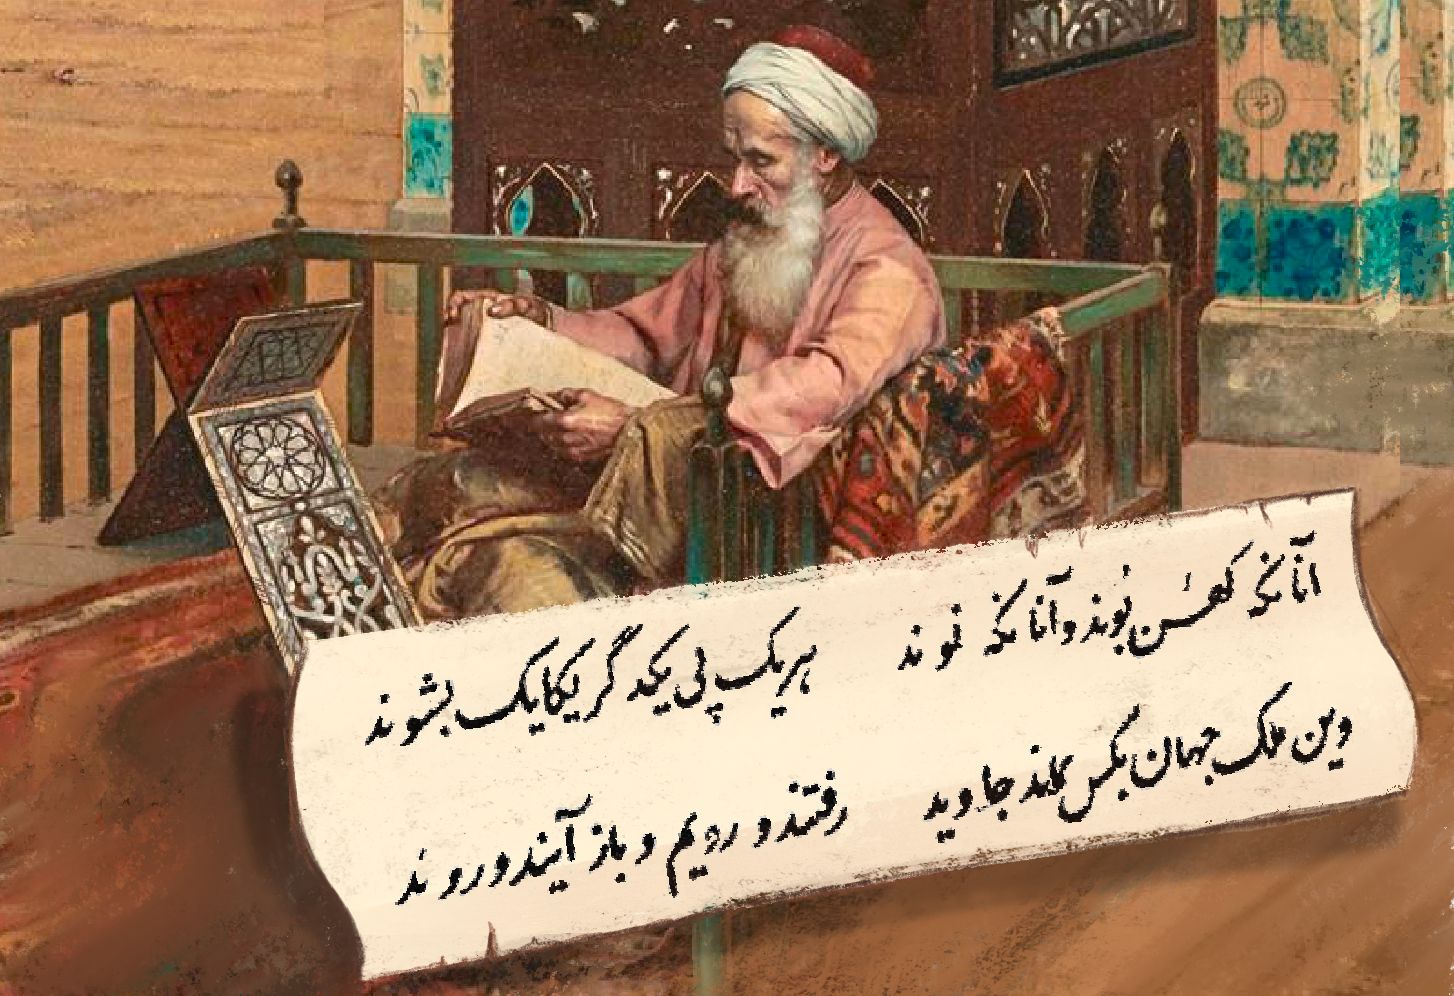 آنانکه کهن بوند و آنانکه نوند هر یک پی یکدگر یکایک بشوند
وین ملک جهان بکس نماند جاوید رفتند و رویم و باز آیند و روند